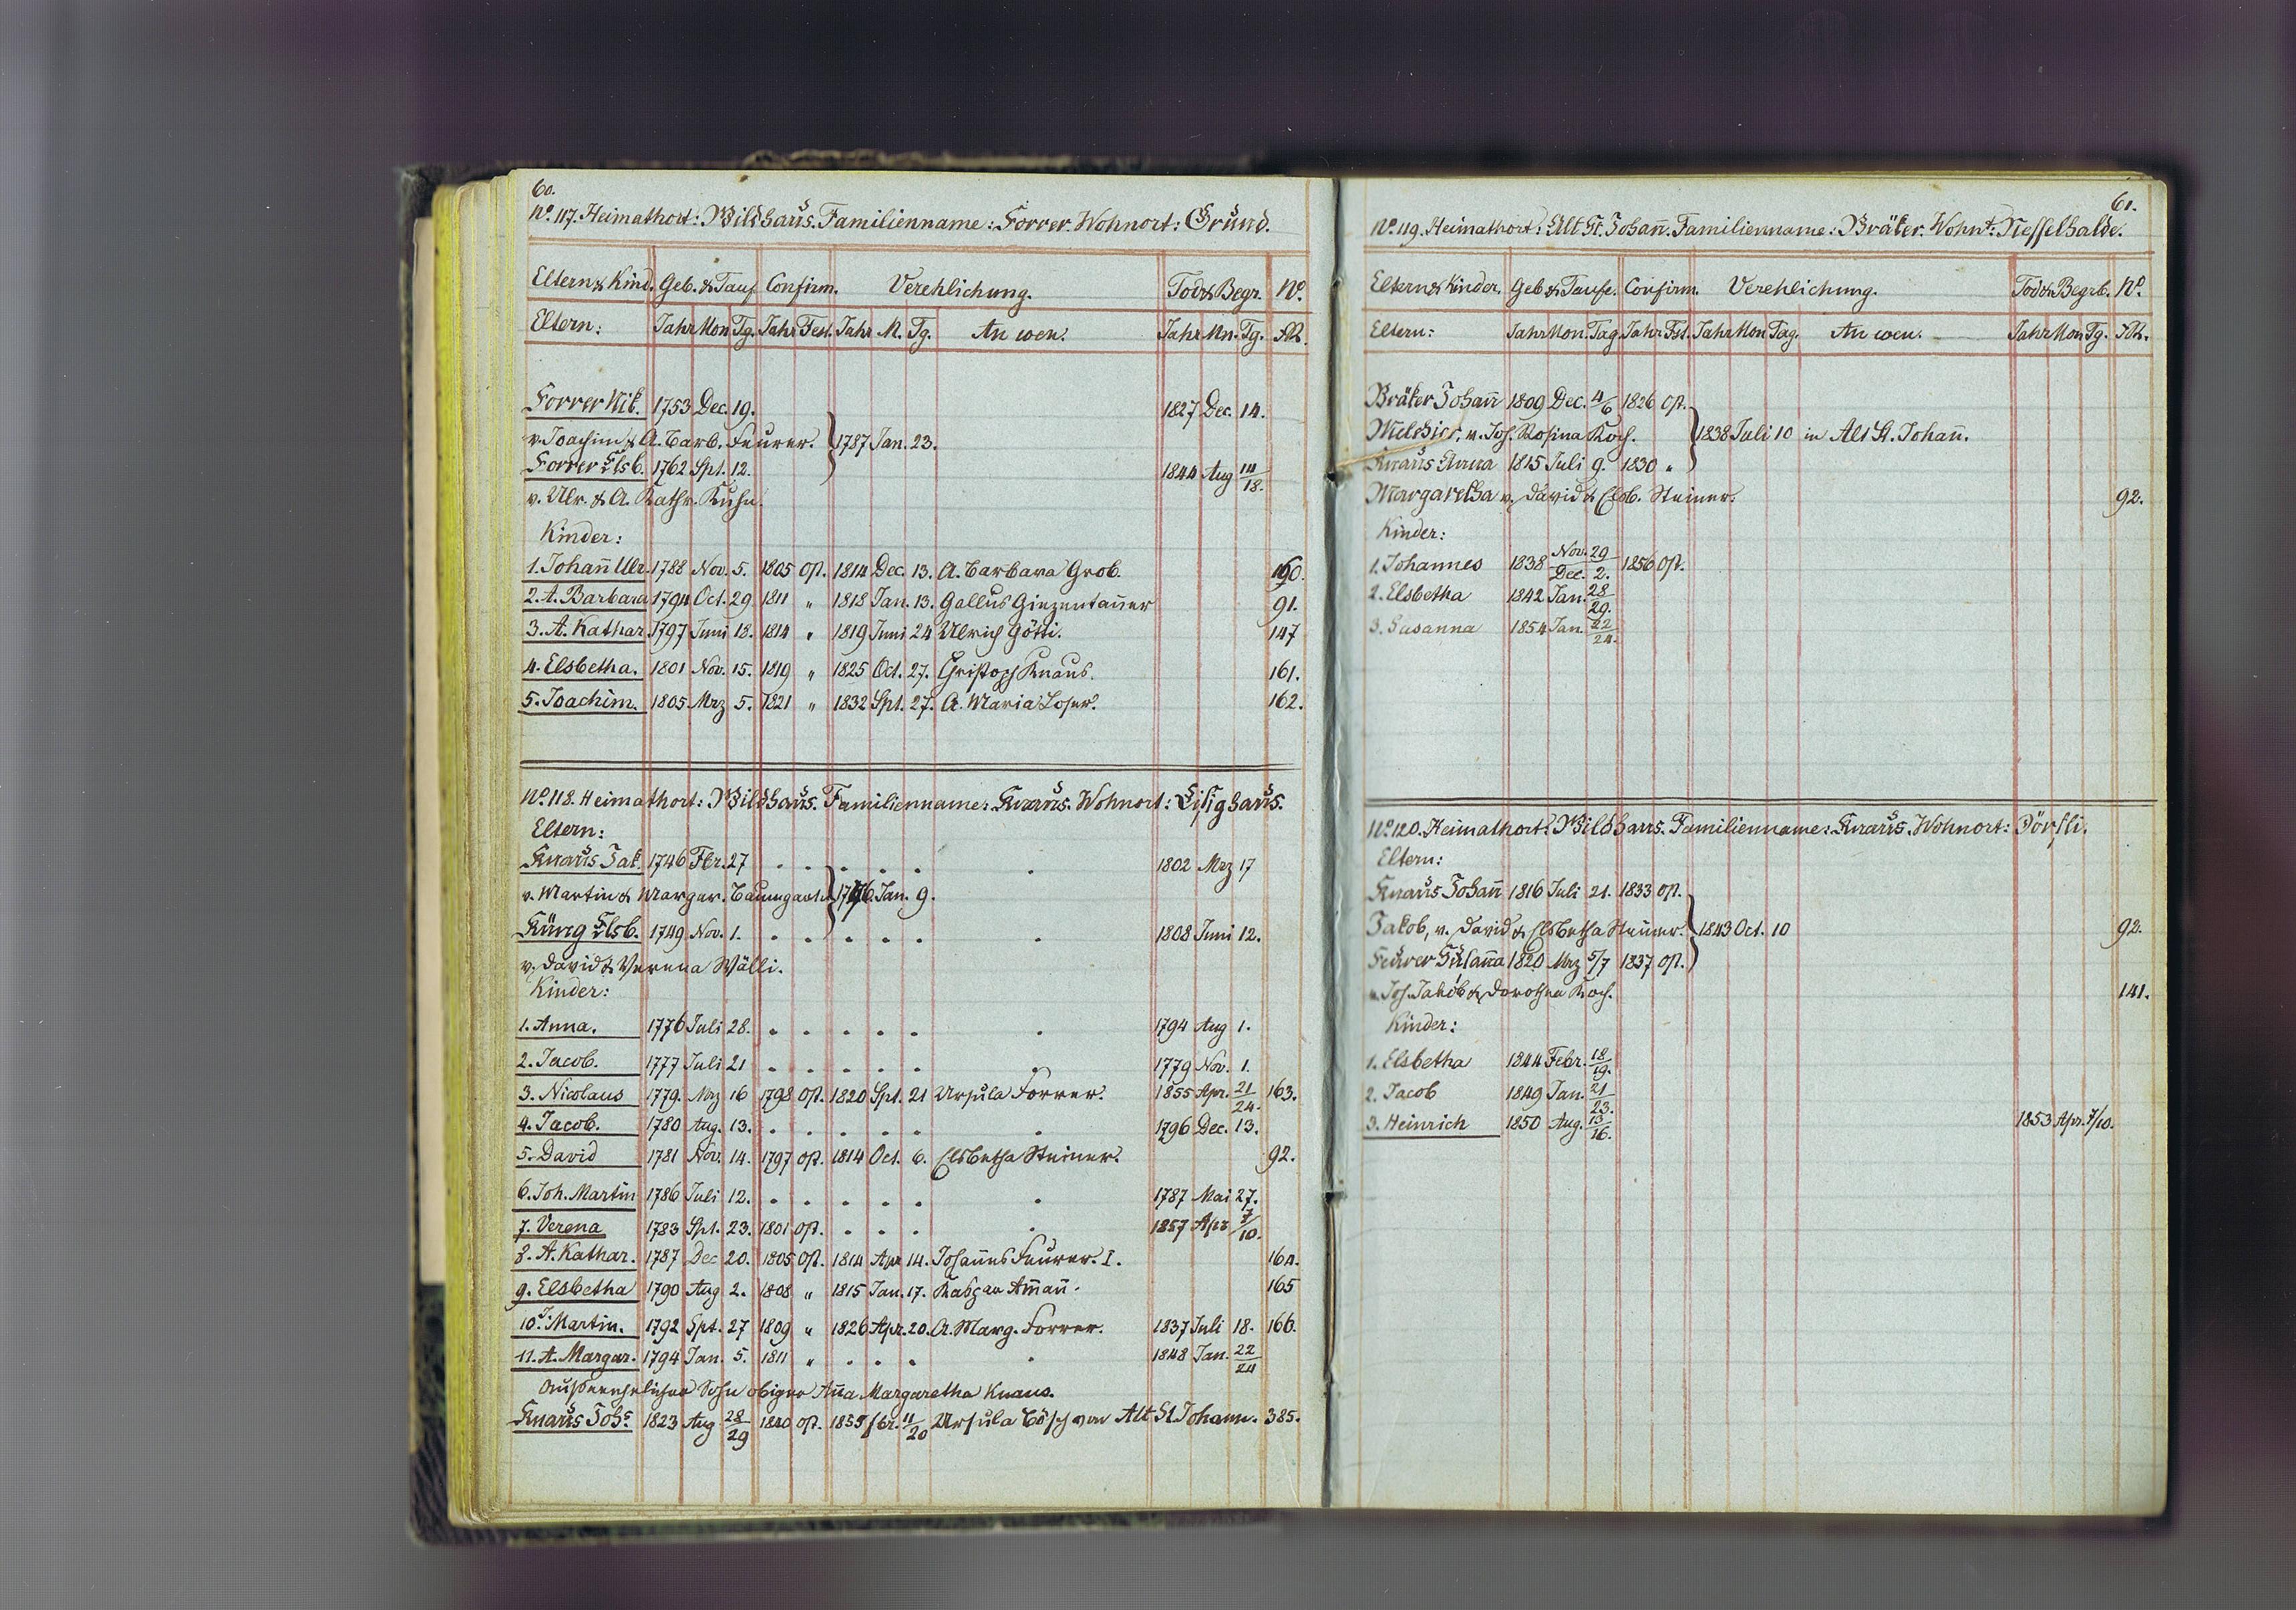 60.
No. 117. Heimathort: Wildhaus. Familienname: Forrer. Wohnort: Grund.
Eltern & Kind. Geb. & Tauf Confirm. Verehlichung. Tod & Begr. No.
Eltern: Jahr Mon Tg. Jahr Fest. Jahr M. Tg. An wen. Jahr Mn. Tg.
Forrer Nik. 1753 Dec. 19. 1827 Dec. 14.
v. Joachim & A. Barb. Feurer. 1787 Jan. 23.
Forrer Elsb. 1762 Spt. 12. 1844 Aug 14/18.
v. Ulr. & A. Kathr. Kuhn.
Kinder:
1. Johann̄ Ulr. 1788 Nov. 5. 1805 Ost. 1814 Dec. 13. A. Barbara Grob.
2. A. Barbara 1794 Oct. 29 1811 " 1818 Jan. 13. Gallus Giezentan̄er 91.
3. A. Kathar. 1797 Juni 18. 1814 " 1819 Juni 24 Ulrich Götti. 147
4. Elsbetha. 1801 Nov. 15. 1819 " 1825 Oct. 27. Christoph Knaus. 161.
5. Joachim. 1805 Mrz 5. 1821 " 1832 Spt. 27. A. Maria Loser. 162.
No. 118. Heimathort: Wildhaus. Familienname: Knaus. Wohnort: Lisighaus.
Eltern:
Knaus Jak. 1746 Fbr. 27 . . . . . . 1802 Mrz 17
v. Martin & Margar. Baumgart. 1776 Jan. 9.
Küng Elsb. 1749 Nov. 1. . . . . . . 1808 Juni 12.
v. David & Verena Wälli.
Kinder:
1. Anna. 1776 Juli 28. . . . . . . 1794 Aug 1.
2. Jacob. 1777 Juli 21 . . . . . . 1779 Nov. 1.
3. Nicolaus 1779. Mrz 16 1798 Ost. 1820 Spt. 21 Ursula Forrer. 1855 Apr. 21/24. 163.
4. Jacob. 1780 Aug. 13. . . . . . . 1796 Dec. 13.
5. David 1781 Nov. 14. 1797 Ost. 1814 Oct. 6. Elsbetha Steiner. 92.
6. Joh. Martin 1786 Juli 12. . . . . . . 1787 Mai 27.
7. Verena 1783 Spt. 23. 1801 Ost. . . . . 1857 Apr 7/10.
8. A. Kathar. 1787 Dec 20. 1805 Ost. 1814 Apr 14. Johan̄es Feurer. I. 164.
9. Elsbetha 1790 Aug 2. 1808 " 1815 Jan. 17. Kaspar Am̄an̄. 165
10. J. Martin. 1792 Spt. 27 1809 " 1826 Apr. 20. A. Marg. Forrer. 1837 Juli 18. 166.
11. A. Margar. 1794 Jan. 5. 1811 " . . . . 1848 Jan. 22/24
Ausserehelicher Sohn obiger An̄a Margaretha Knaus.
Knaus Johs. 1823 Aug 28/29 1840 Ost. 1855 fbr. 11/20 Ursula Bösch von Alt St. Johann. 385.
61.
No. 119. Heimathort: Alt St. Johan̄. Familienname: Bräker. Wohnt: Nesselhalde.
Eltern & Kinder. Geb. & Taufe. Confirm. Verehlichung. Tod & Begrb. No.
Eltern: Jahr Mon. Tag Jahr Fst. Jahr Mon Tag. An wen. Jahr Mon Tg.
Bräker Johan̄ 1809 Dec. 4/6 1826 Ost.
Melchior, v. Joh. Rosina Koch. 1838 Juli 10 in Alt St. Johan̄.
Knaus Anna 1815 Juli 9. 1830 "
Margaretha v. David & Elsb. Steiner. 92.
Kinder:
1. Johannes 1838 Nov. 29/Dec. 2. 1856 Ost.
2. Elsbetha 1842 Jan. 28/29.
3. Susanna 1854 Jan. 22/24.
No. 120. Heimathort: Wildhaus. Familienname: Knaus. Wohnort: Dörfli.
Eltern:
Knaus Johan̄ 1816 Juli 21. 1833 Ost.
Jakob, v. David & Elsbetha Steiner. 1843 Oct. 10 92.
Feurer Susan̄a 1820 Mrz 5/7 1837 Ost.
v. Joh. Jakob & Dorothea Koch. 141.
Kinder:
1. Elsbetha 1844 Febr. 18/19.
2. Jacob 1849 Jan. 21/23.
3. Heinrich 1850 Aug. 13/16. 1853 Apr. 7/10.